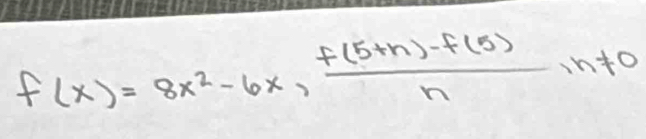 f(x) = 8x² - 6x, \frac{f(5+n)-f(5)}{n}, n≠0